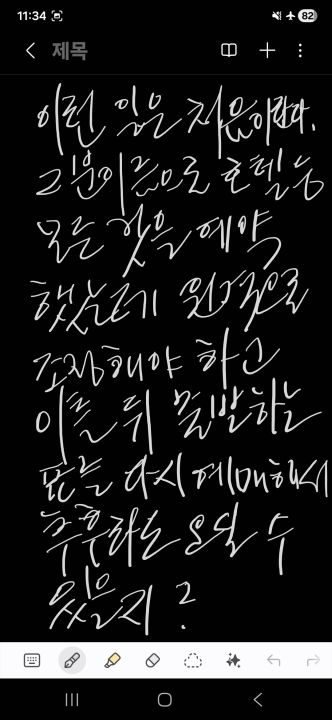 11:34 82
제목
이런 일은 처음이란다.
그분이름으로 호텔등
모든 것을 예약
했는데 원격으로
조정해야 하고
이틀 뒤 출발하는
표를 다시 예매해서
추후라도 올 수
있을지?